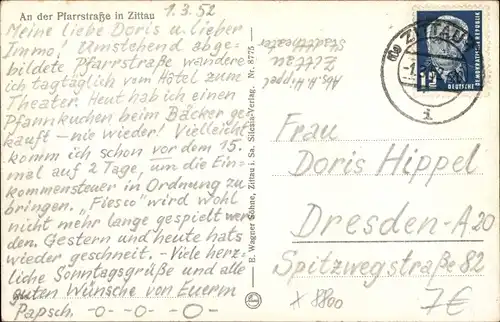 An der Pfarrstraße in Zittau
1.3.52
Meine liebe Doris u. lieber
Immo! Umstehend abge-
bildete Pfarrstraße wandere
ich tagtäglich vom Hotel zum
Theater. Heut hab ich einen
Pfannkuchen beim Bäcker ge-
kauft – nie wieder! Vielleicht
komm ich schon vor dem 15.
mal auf 2 Tage, um die Ein-
kommensteuer in Ordnung zu
bringen. „Fiesco" wird wohl
nicht mehr lange gespielt wer-
den. Gestern und heute hats
wieder geschneit. – Viele herz-
liche Sonntagsgrüße und alle
guten Wünsche von Euerm
Papsch. -o-o-o-
B. Wagner Söhne, Zittau i. Sa. Silesia-Verlag. Nr. 8775
Abs. H. Hippel
Zittau
Stadttheater
ZITTAU
12
DEUTSCHE
DEMOKRATISCHE REPUBLIK
Frau
Doris Hippel
Dresden-A.20
Spitzwegstraße 82
x 8800
7€